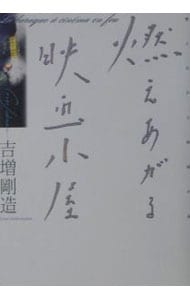 La baraque à cinéma en feu
燃えあがる
映画小屋
吉増剛造